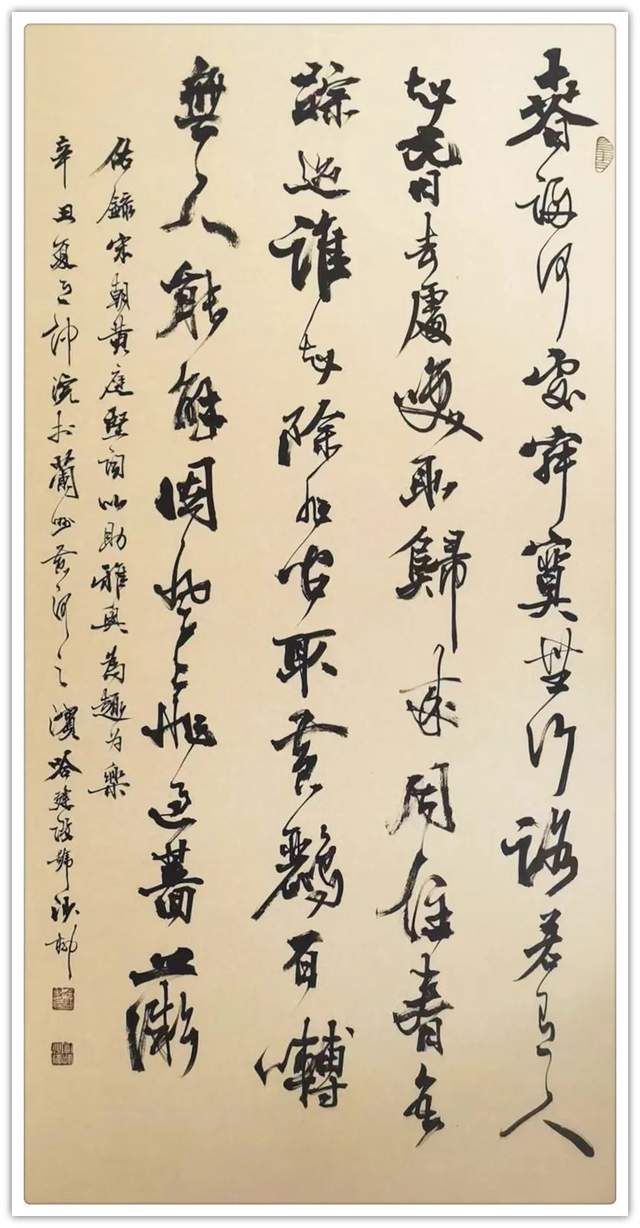 春歸何處寂寞無行路若有人
知春去處喚取歸來同住春無
踪迹誰知除非問取黃鸝百囀
無人能解因風飛過薔薇
錄宋朝黃庭堅詞以助雅興為趣為樂
辛丑夏於蘭州黃河之濱